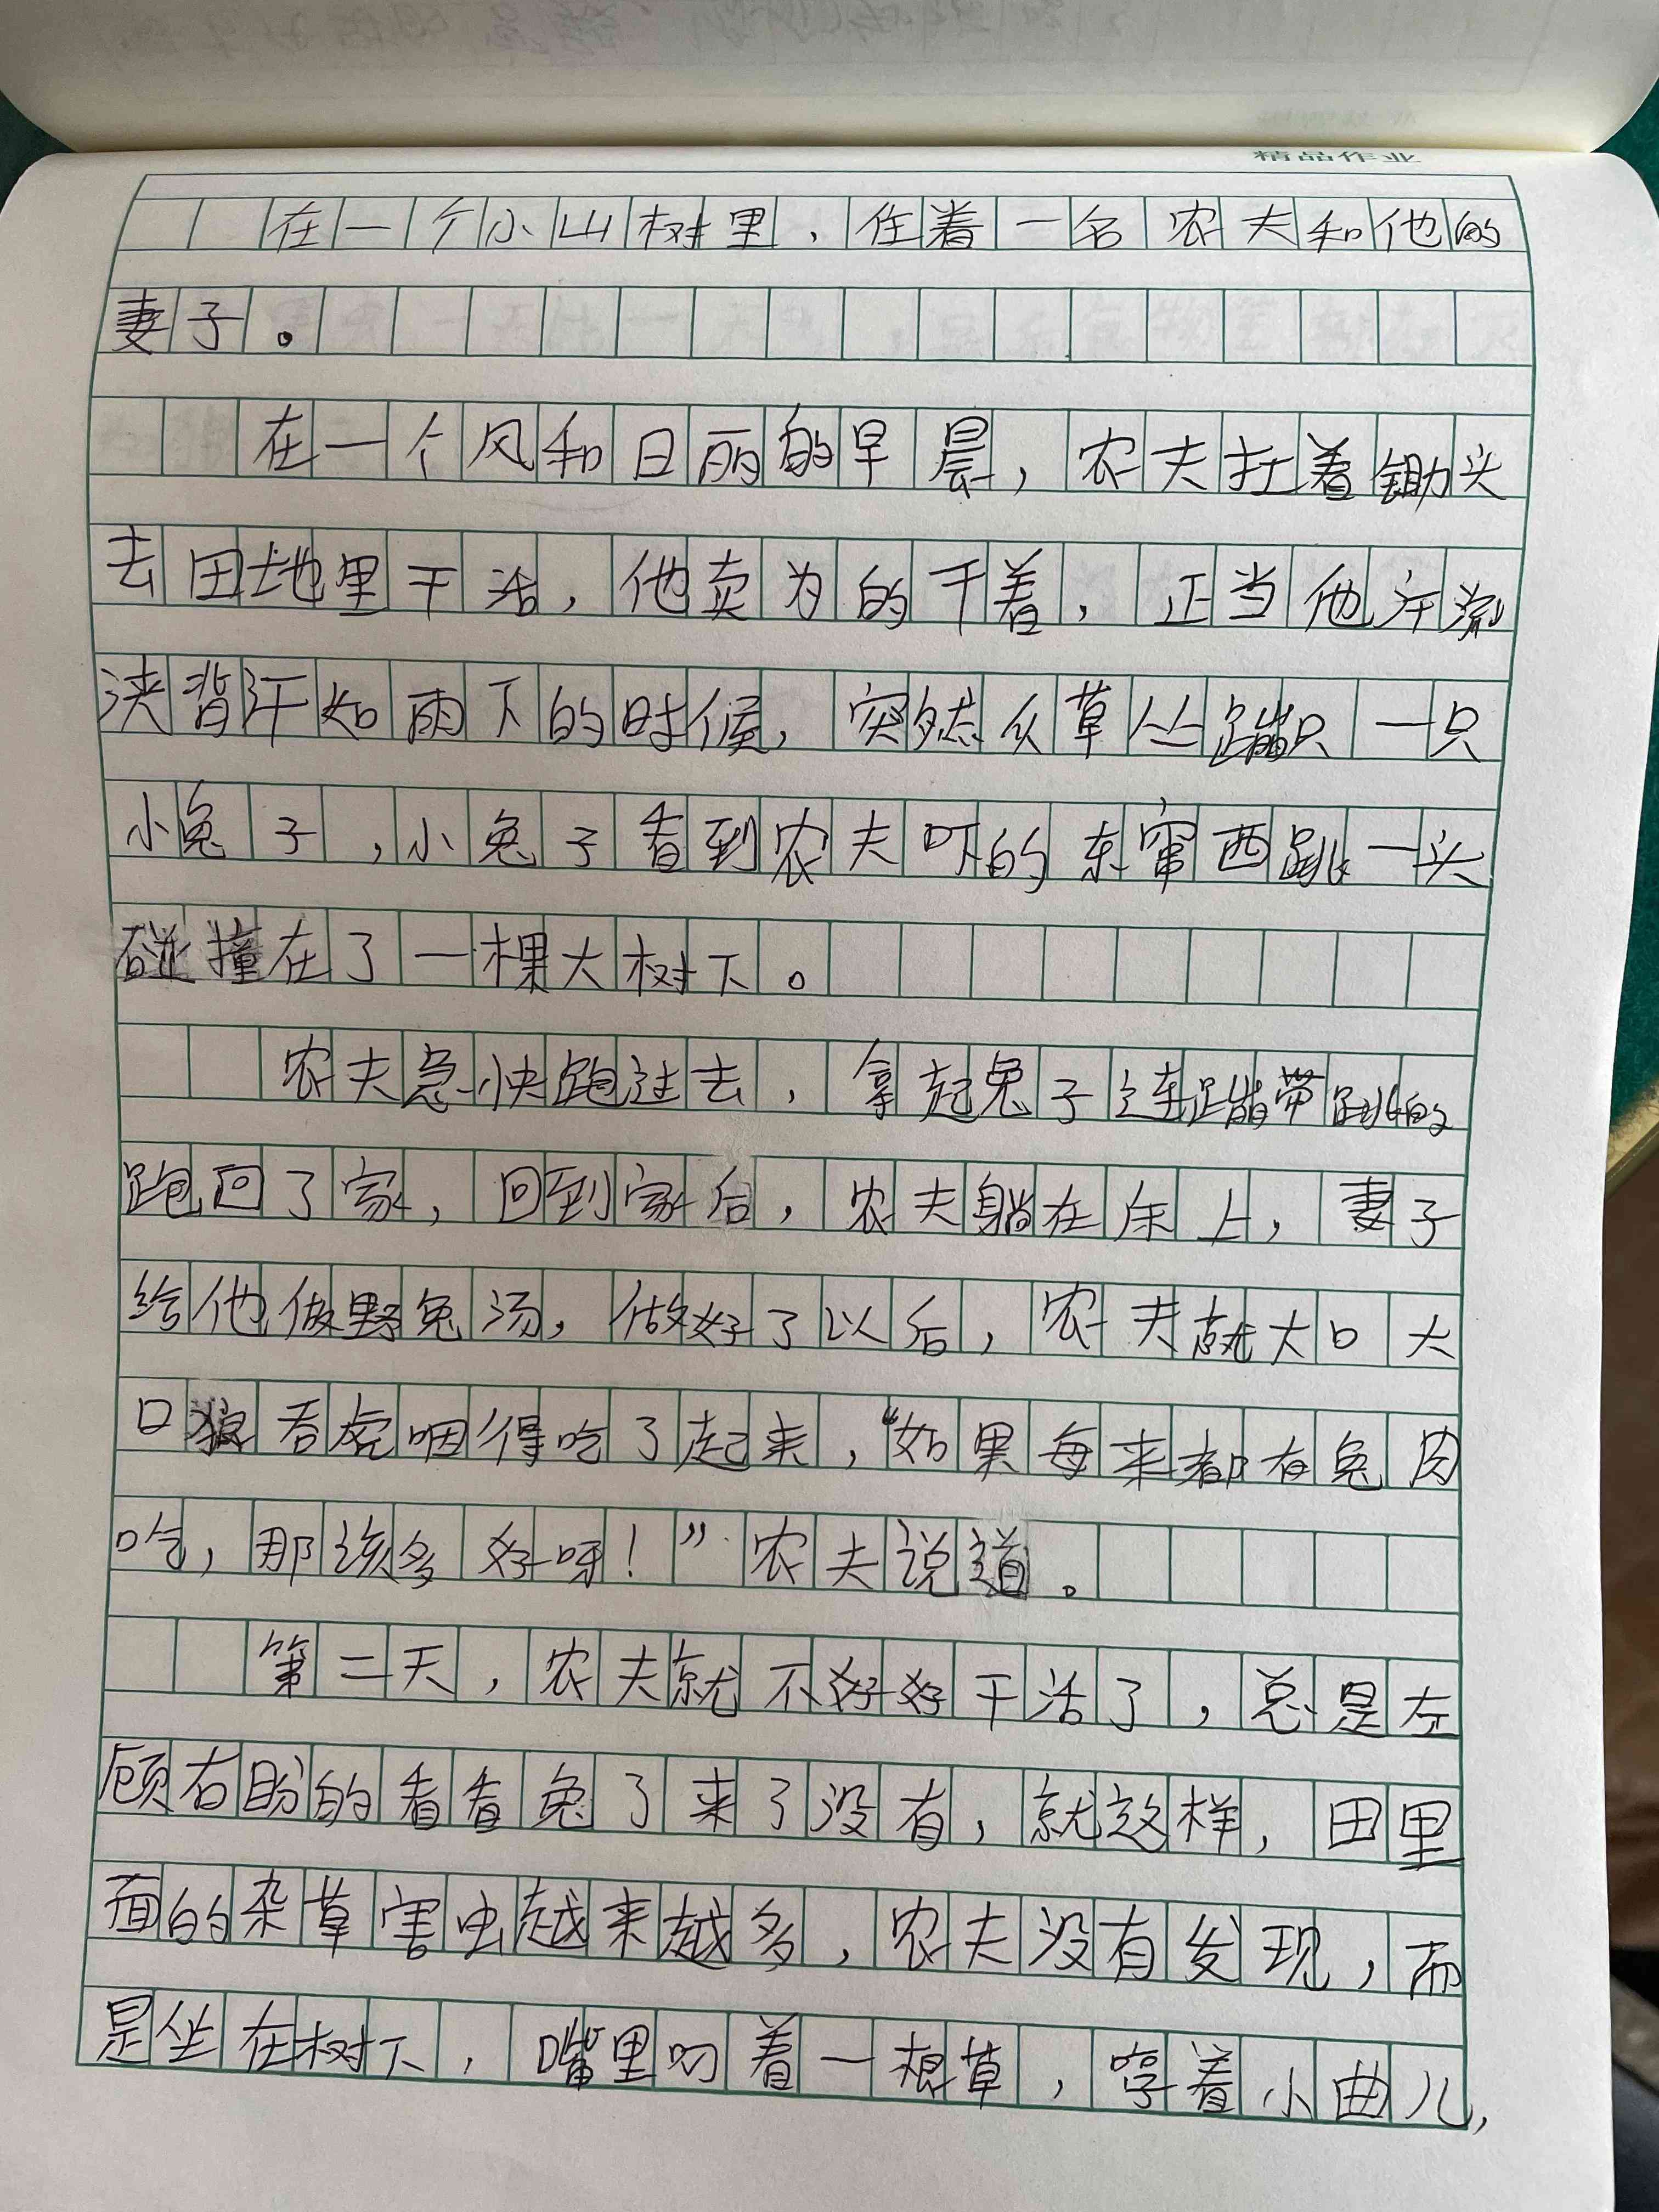 精品作业
在一个小山树里，住着一名农夫和他的
妻子。
在一个风和日丽的早晨，农夫扛着锄头
去田地里干活，他卖为的干着，正当他汗流
浃背汗如雨下的时候，突然从草丛蹦只一只
小兔子，小兔子看到农夫吓的东窜西跳一头
碰撞在了一棵大树下。
农夫急快跑过去，拿起兔子连蹦带跳的
跑回了家，回到家后，农夫躺在床上，妻子
给他做野兔汤，做好了以后，农夫就大口大
口狼吞虎咽得吃了起来，“如果每来都有兔肉
吃，那该多好呀！”农夫说道。
第二天，农夫就不好好干活了，总是左
顾右盼的看看兔了来了没有，就这样，田里
面的杂草害虫越来越多，农夫没有发现，而
是坐在树下，嘴里叼着一根草，哼着小曲儿，